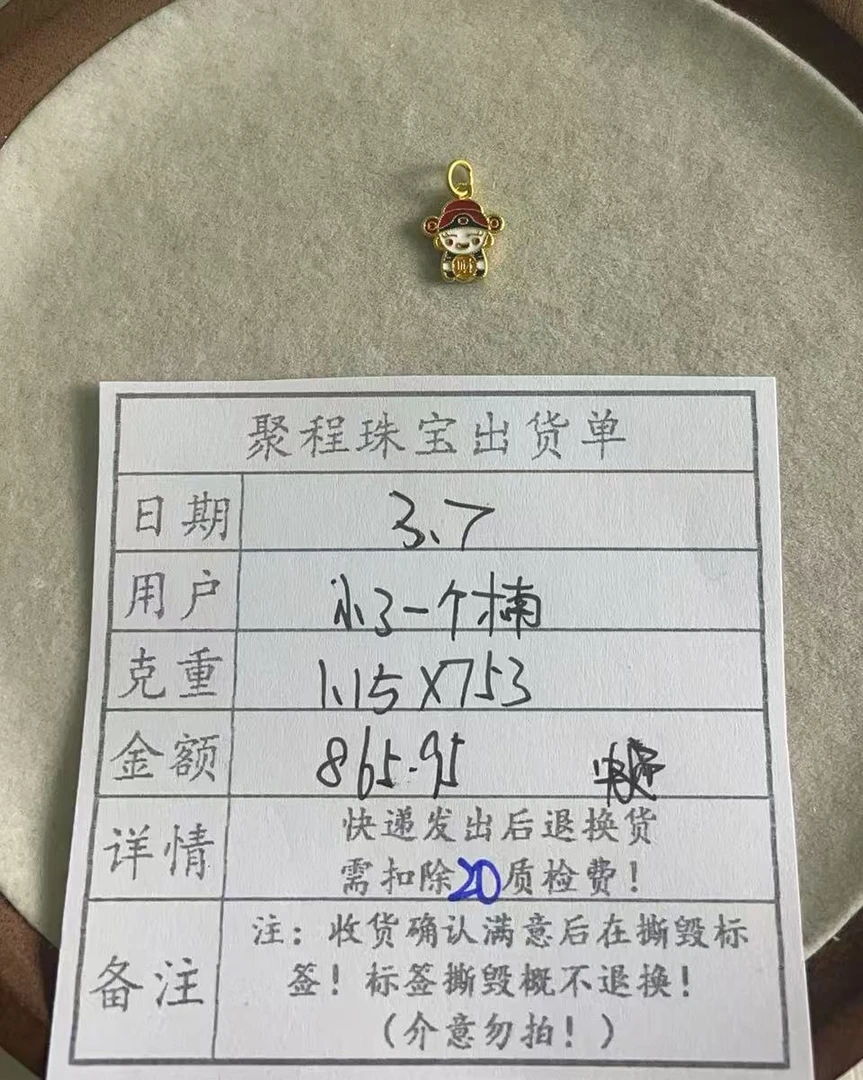 聚程珠宝出货单
日期 3.7
用户 小3一个楠
克重 1.15X753
金额 865.95
详情 快递发出后退换货
需扣除20质检费！
备注 注：收货确认满意后在撕毁标
签！标签撕毁概不退换！
（介意勿拍！）